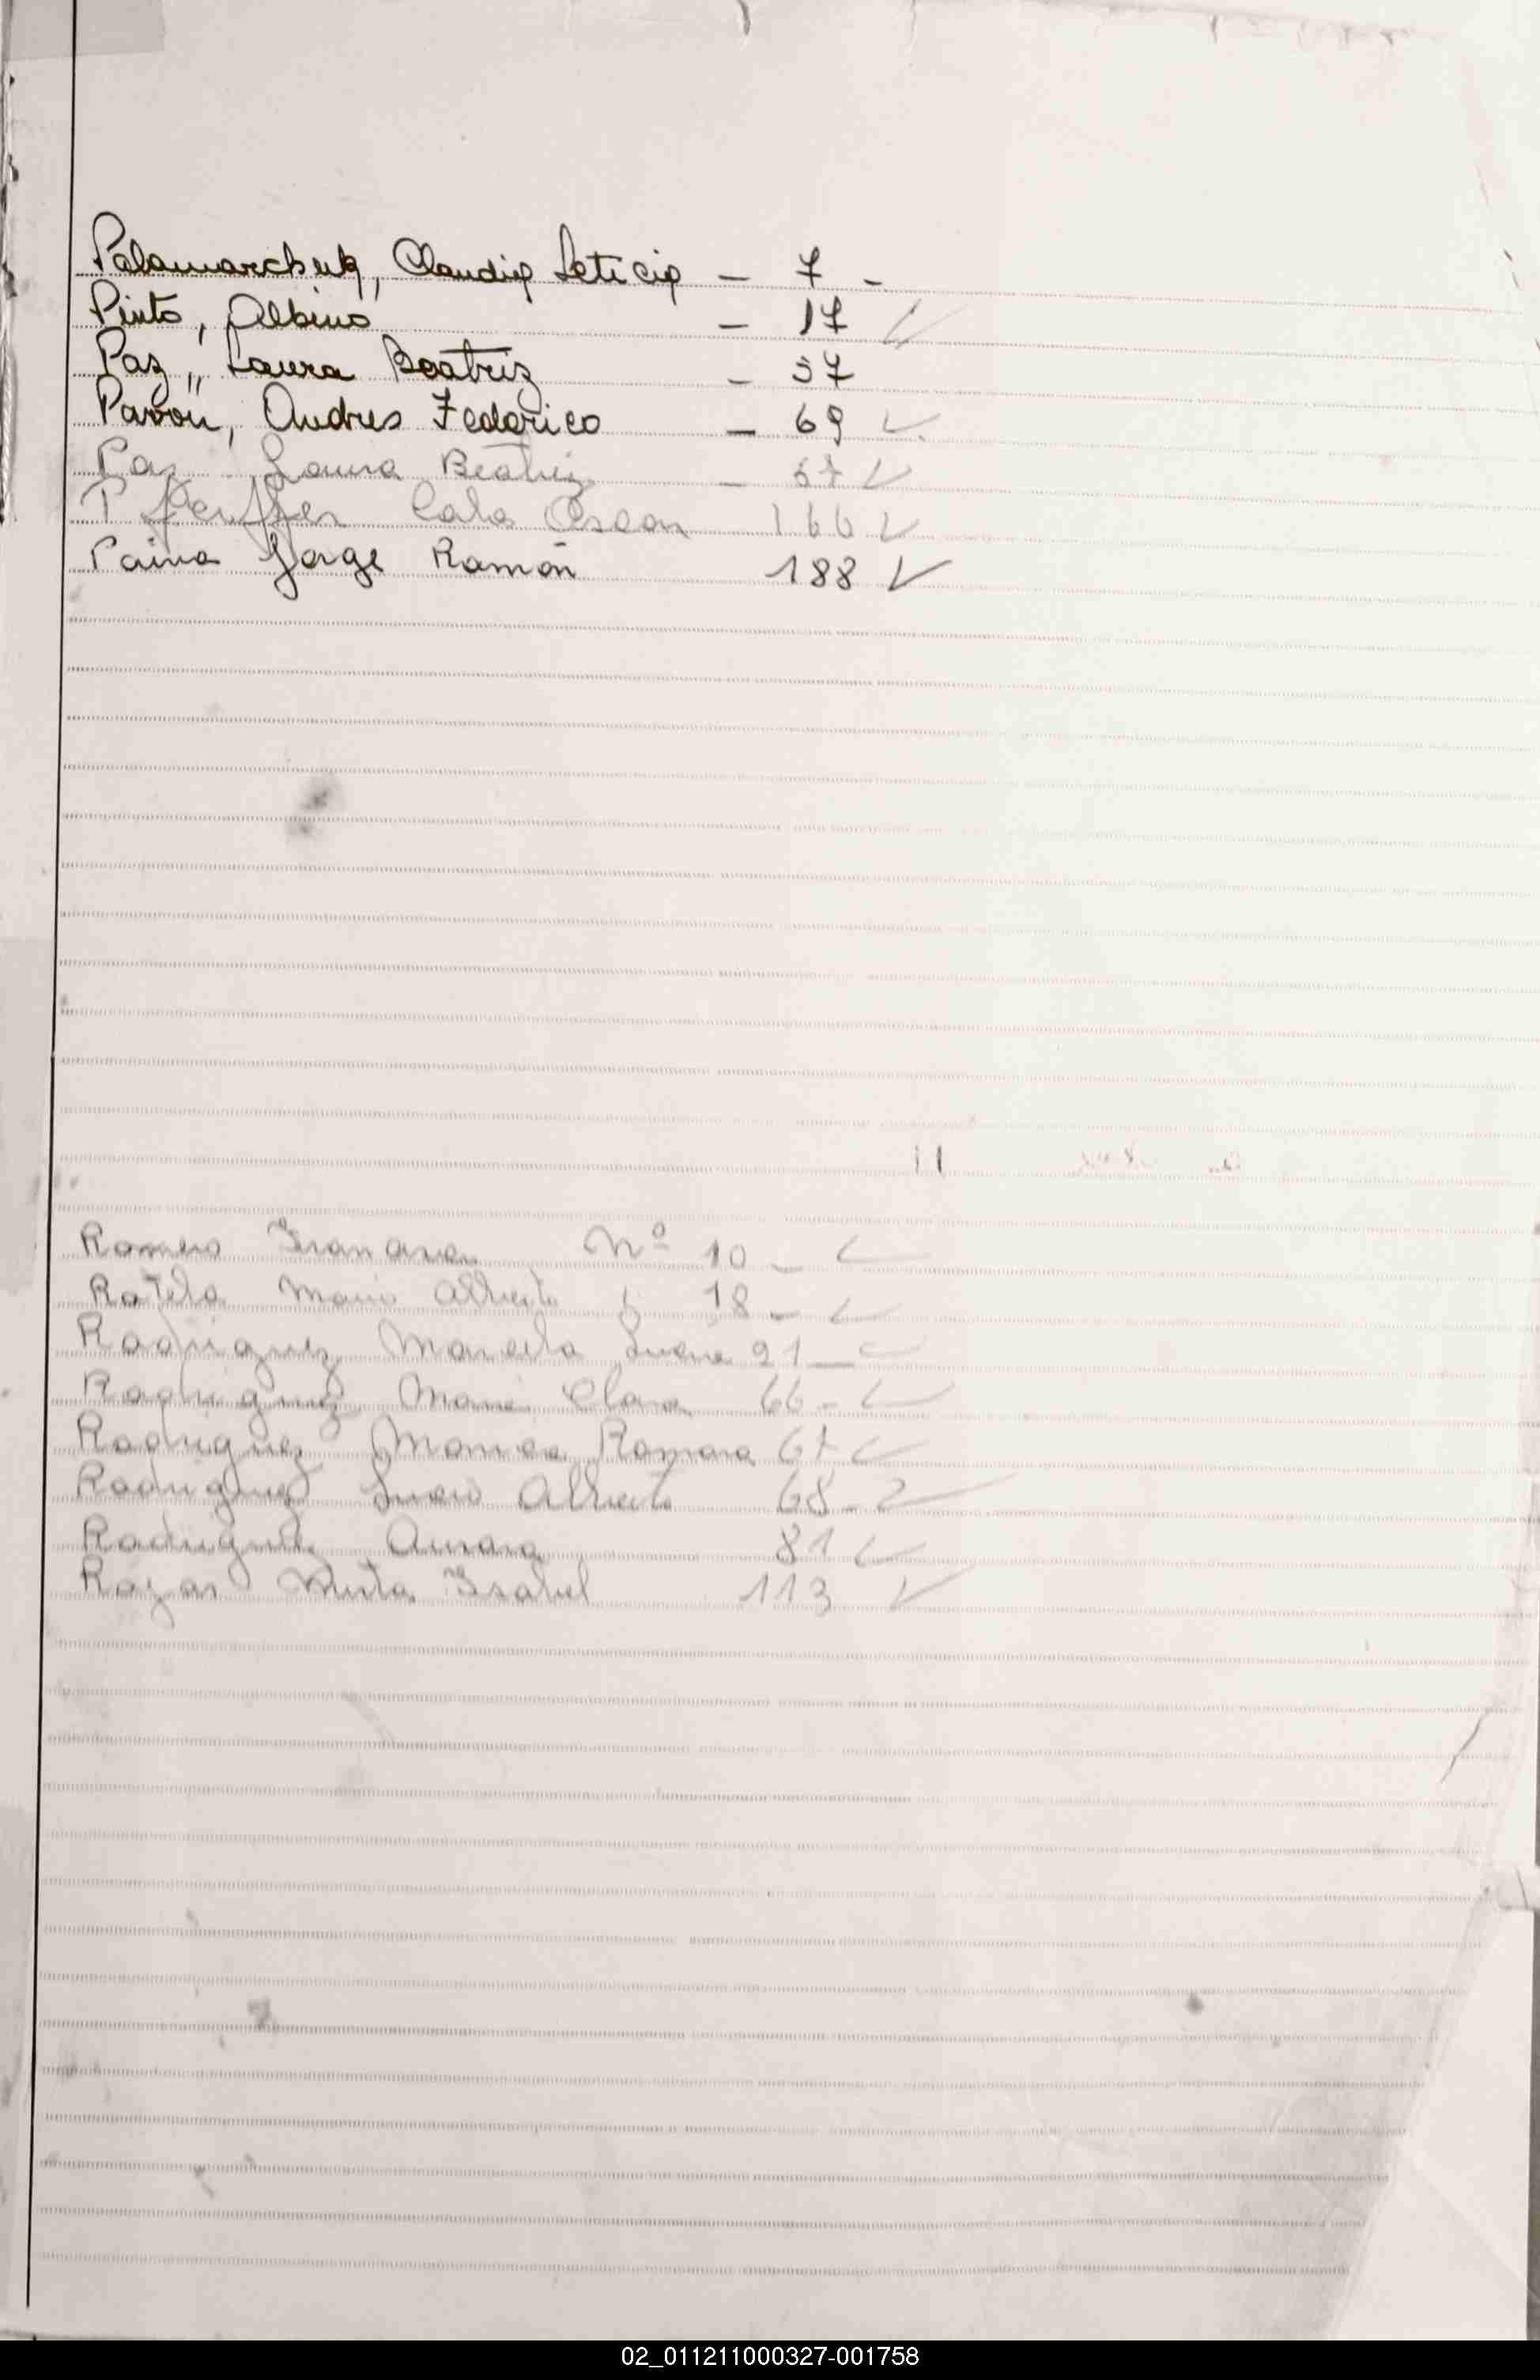 Palamarchuk, Claudia Leticia - 7 -
Pinto, Albino - 17 ✓
Paz, Laura Beatriz - 37
Pavon, Andres Federico - 69 ✓
Paz Laura Beatriz - 37 ✓
Pfeiffer Oscar 166 ✓
Paiva Jorge Ramón 188 ✓
Romero Nº 10 - ✓
Rotela Mario Alberto 18 - ✓
Rodriguez Marcela 21 - ✓
Rodriguez Maria Clara 66 - ✓
Rodriguez Monica Romana 67 ✓
Rodriguez Alberto 68 - ✓
Rodriguez 81 ✓
Rojas Mirta Isabel 113 ✓
02_011211000327-001758